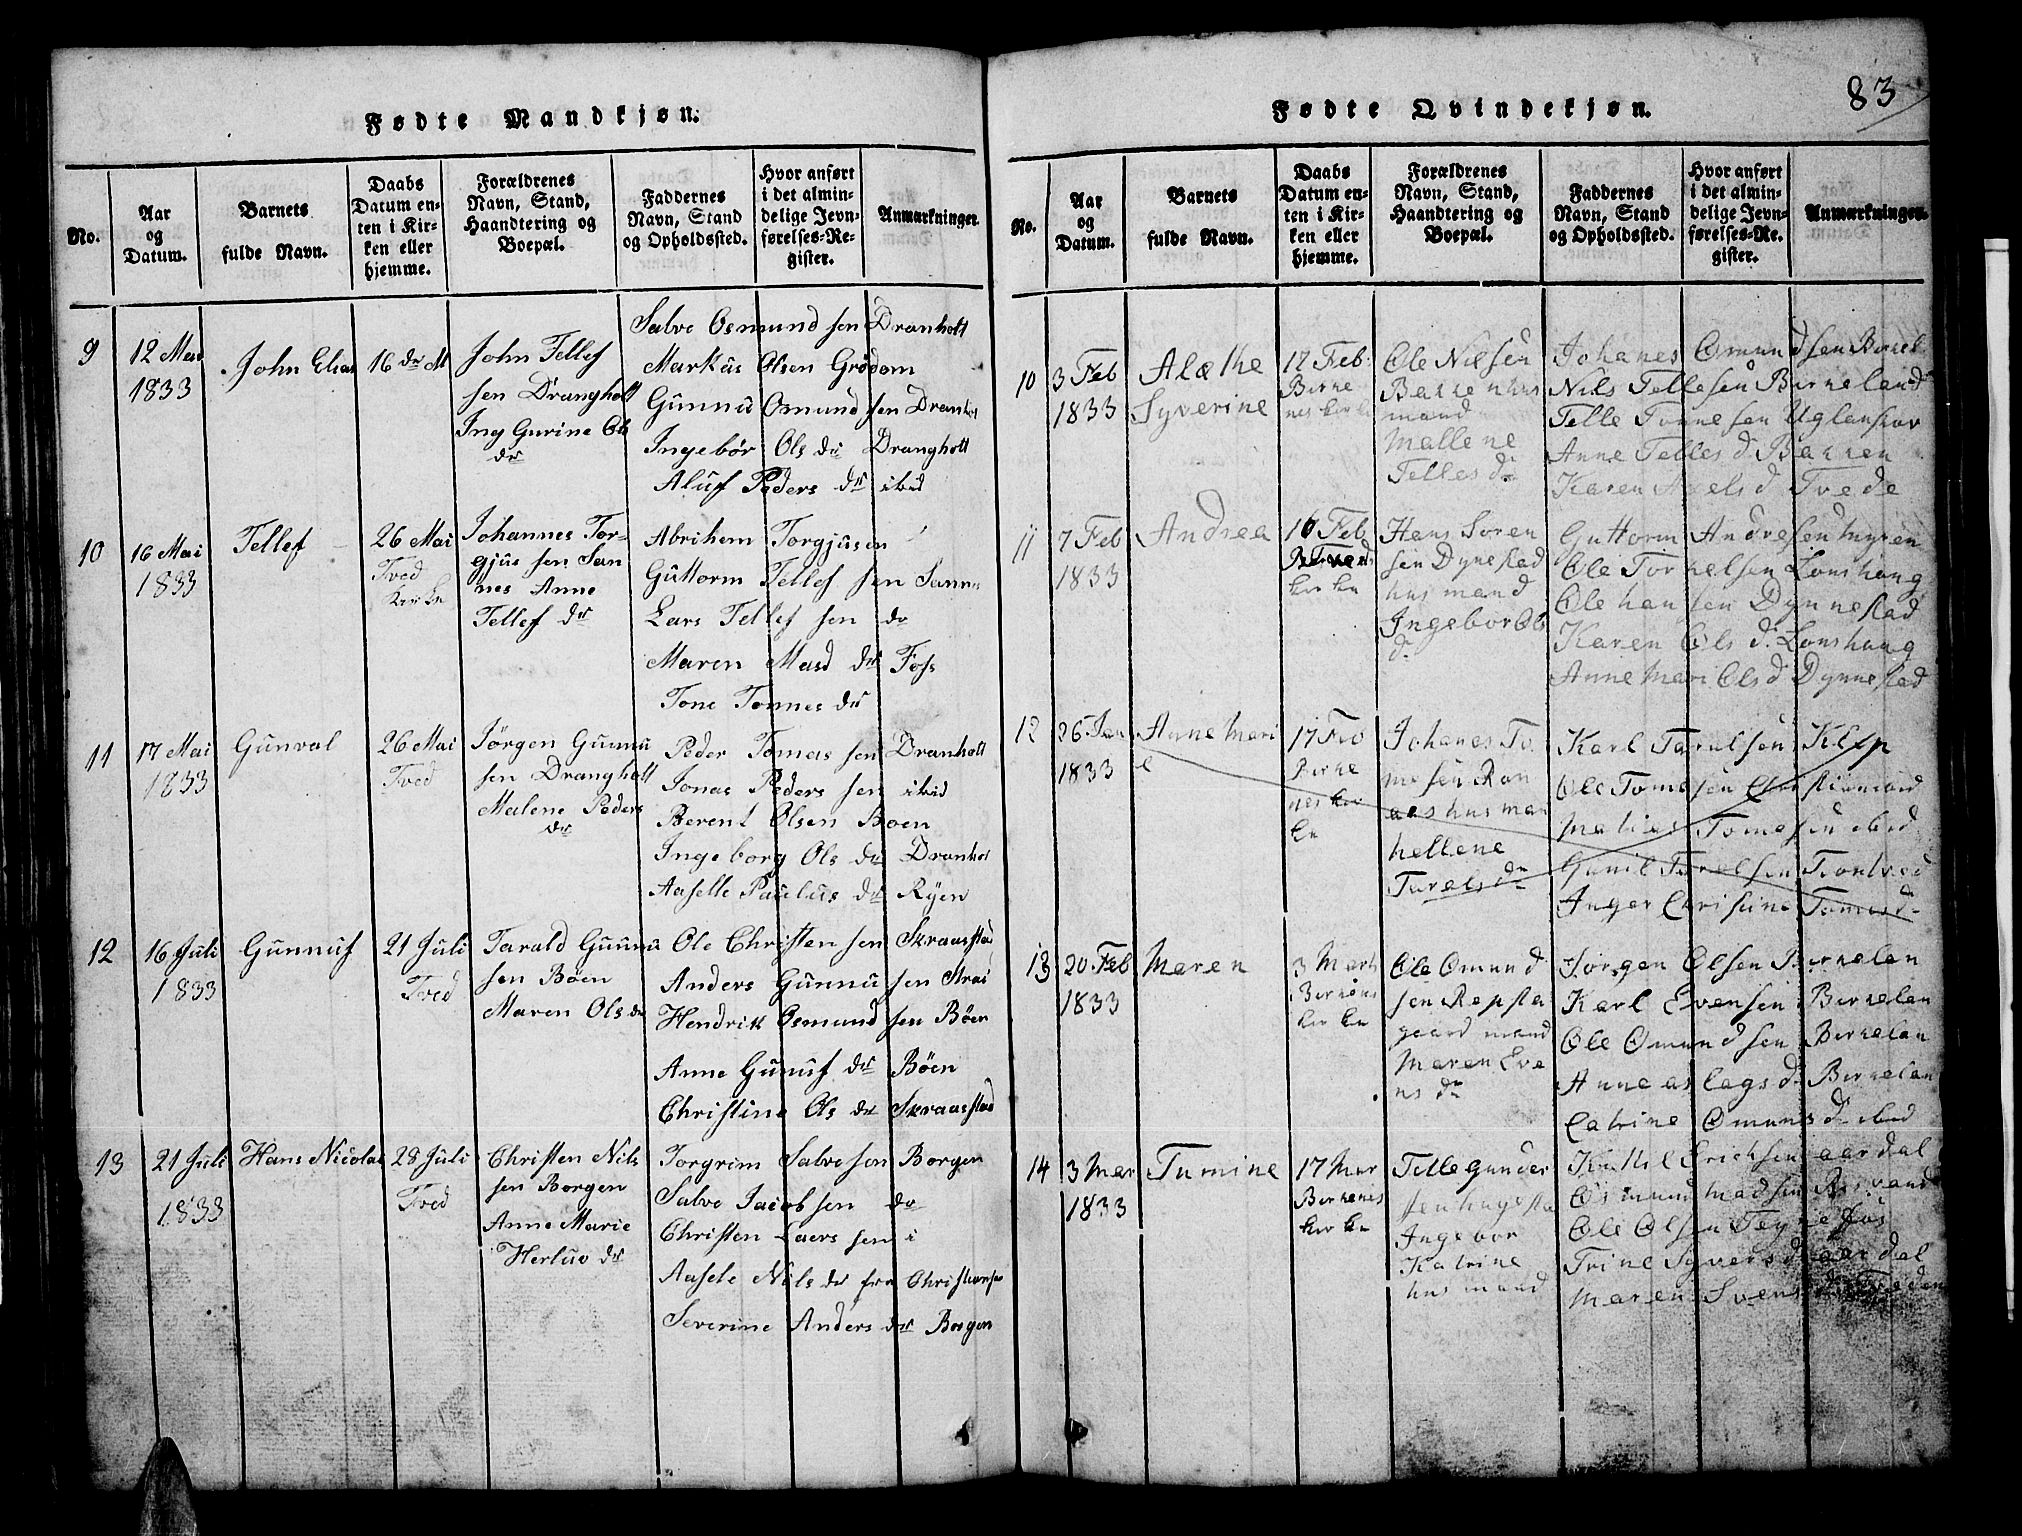 Fødte Mandkjøn.
No.
Aar
og
Datum.
Barnets
fulde Navn.
Daabs
Datum en-
ten i Kir-
ken eller
hjemme.
Forældrenes
Navn, Stand,
Haandtering og
Boepæl.
Faddernes
Navn, Stand
og Opholdssted.
Hvor anført
i det almin-
delige Jevn-
førelses-Re-
gister.
Anmærkninger.
9
12 Mai
1833
John Elias
16 de M
John Tellef
sen Drangholt
Ing Gurine Ols
dr
Salve Osmund sen Dranholt
Markus Olsen Grødom
Gunnu Omund sen Dranhol
Ingebør Ols dr Drangholt
Aluf Peders dr ibid
10
16 Mai
1833
Tellef
26 Mai
Tved
Kirke
Johannes Tor-
gjus sen San
nes Anne
Tellef dr
Abrihem Torgjusen
Guttorm Tellef sen Sann
Lars Tellef sen do
Maren Masd dr Foss
Tone Tonnes dr
11
17 Mai
1833
Gunval
26 Mai
Tved
Jørgen Gunnu
sen Drangholt
Malene Peders
dr
Peder Tomas sen Dranholt
Jonas Peders sen ibid
Berent Olsen Boen
Ingeborg Ols dr Dranhol
Aaselle Paulus dr Ryen
12
16 Juli
1833
Gunnuf
21 Juli
Tved
Tarald Gunnu
sen Böen
Maren Ols dr
Ole Christen sen Skraastad
Anders Gunnu sen Strai
Hendrik Osmund sen Böen
Anne Gunuf dr Böen
Christine Ols dr Skraastad
13
21 Juli
1833
Hans Nicolai
28 Juli
Tved
Christen Nils
sen Borgen
Anne Marie
Herluv dr
Torgrim Salvesen Borgen
Salve Jacobsen do
Christen Laers sen i
Aasele Nils dr fra Christiansa
Severine Anders dr Borgen
83
Fødte Qvindekjøn.
No.
Aar
og
Datum.
Barnets
fulde Navn.
Daabs
Datum en-
ten i Kir-
ken eller
hjemme.
Forældrenes
Navn, Stand,
Haandtering og
Boepæl.
Faddernes
Navn, Stand
og Opholdssted.
Hvor anført
i det almin-
delige Jevn-
førelses-Re-
gister.
Anmærkninger.
10
3 Feb
1833
Alæthe
Syverine
17 Feb
Birke
nes kirke
Ole Nilsen
Bakken hus
mand
Mallene
Telles dr
Johanes Omundsen Birkel
Nils Tellesen Birkeland
Telle Tonnesen Uglanskor
Anne Telles d Bakken
Karen Axels d Tvede
11
7 Feb
1833
Andrea
10 Feb
Tveds
kirke
Hans Soren
sen Dynestad
hus mand
Ingebor Ols
d
Guttorm Andresen myren
Ole Torkelsen Lonshaug
Ole hansen Dynnestad
Karen Ols d. Lonshaug
Anne Mari Ols d Dynnestad
12
26 Jan
1833
Anne Mari
e
17 Feb
Birke
nes kir
ke
Johanes To
mesen Ron
aas hus man
hellene
Tarels dr
Karl Tarelsen Klep
Ole Tomesen
Matias Tomesen ibid
Gunil Tarelsen Tvontved
Inger Christine Tomesd.
13
20 Feb
1833
Maren
3 Mart
Birkenes
kirke
Ole Omund
sen Repsta
gaard mand
Maren Eve
ns dr
Jørgen Olsen Birkelan
Karl Evensen Birkelan
Ole Omundsen Birkelan
Anne aslags d. Birkelan
Catrine Omuns d ibid
14
3 Mar
1833
Tumine
17 Mar
Birkenes
kirke
Telle Gunder
sen hagesta
Ingebor
Katrine
hus mand
Kittil Erichsen aardal
Osmund Madsen Risvand
Ole Olsen
Trine Syvers d aardal
Maren Svens d Tveden